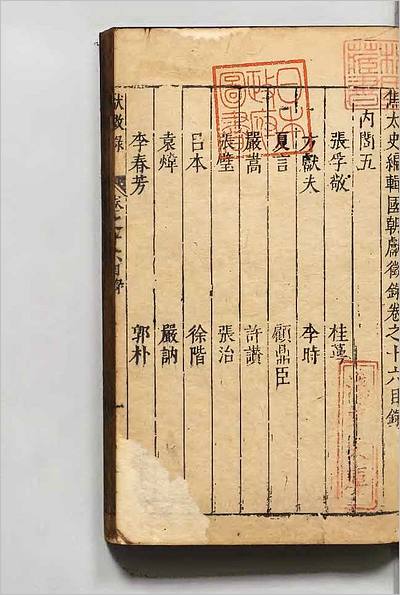 焦太史編輯國朝獻徵錄卷之十六目錄
內閣五
張孚敬 桂萼
方獻夫 李時
夏言 顧鼎臣
嚴嵩 許讚
張璧 張治
呂本 徐階
袁煒 嚴訥
李春芳 郭朴
獻徵錄
日本
政府
圖書